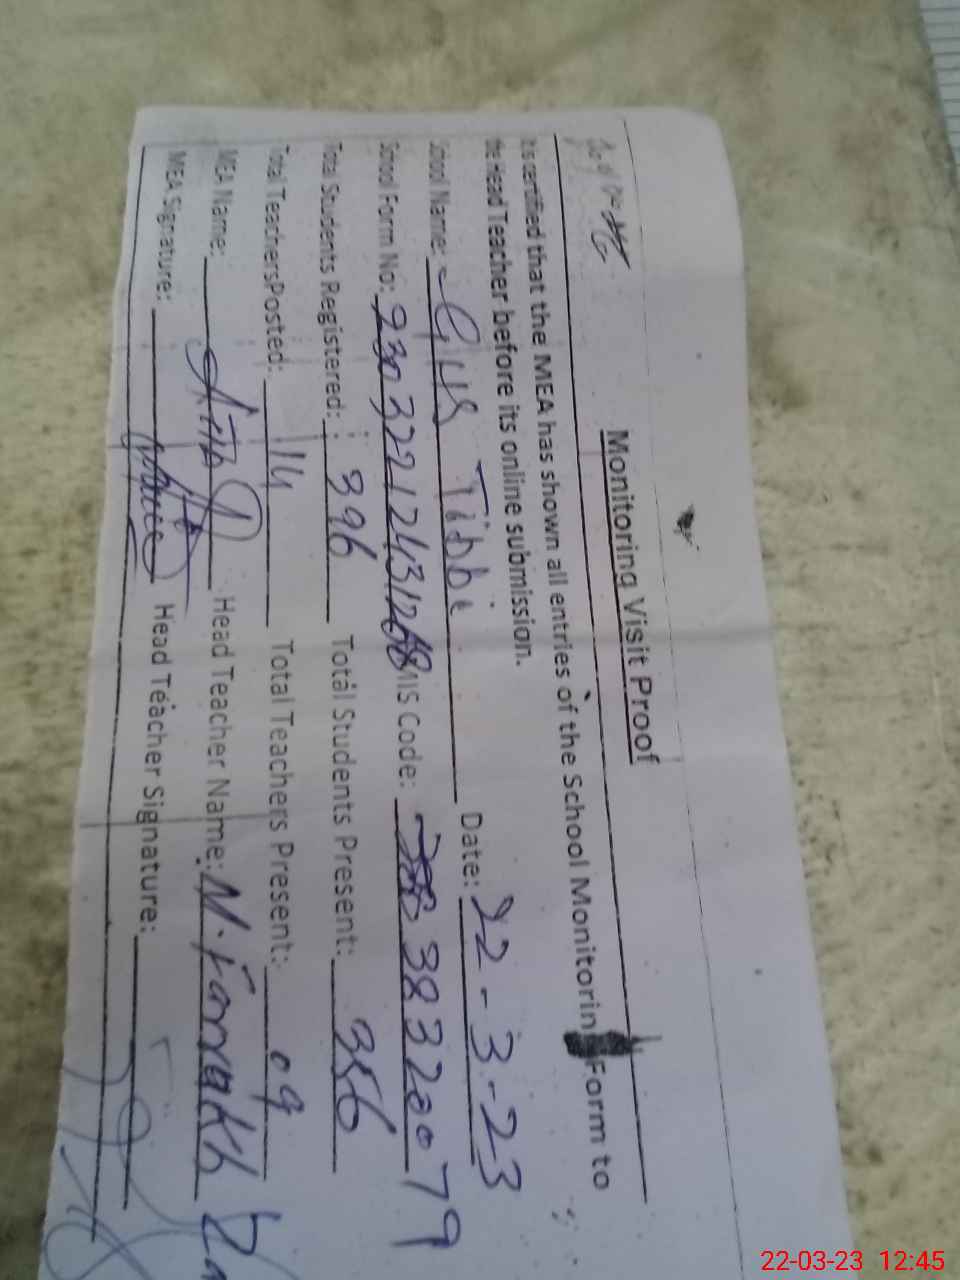 Monitoring Visit Proof
It is certified that the MEA has shown all entries of the School Monitoring Form to
the Head Teacher before its online submission.
School Name: GHS Tibbi Date: 22-3-23
School Form No: MIS Code: 38320079
Total Students Registered: 396 Total Students Present: 356
Total Teachers Posted: 14 Total Teachers Present: 09
MEA Name: Head Teacher Name: M. Farrukh
MEA Signature: Head Teacher Signature:
22-03-23 12:45